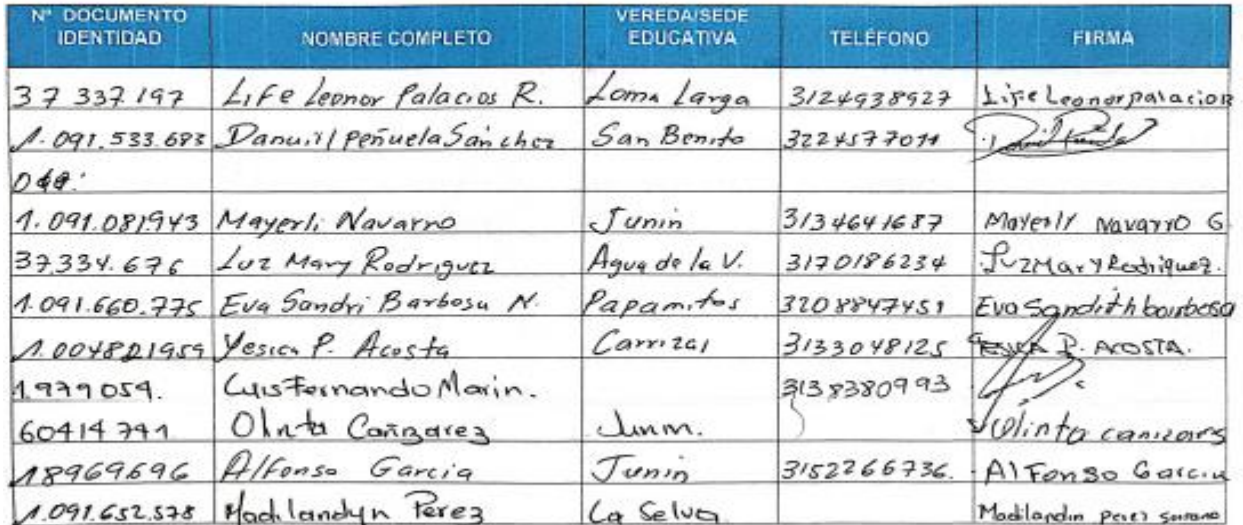 N° DOCUMENTO IDENTIDAD NOMBRE COMPLETO VEREDA/SEDE EDUCATIVA TELÉFONO FIRMA
37 337 197 Life Leonor Palacios R. Loma Larga 3124938927 Life Leonor palacios
1.091.533.683 Peñuela Sánchez San Benito
1.091.081943 Mayerli Navarro Junin 3134641687 Mayerly Navarro G
37.334.676 Luz Mary Rodriguez Agua de la V. 3170186234 Luz Mary Rodriguez.
1.091.660.775 Eva Sandri Barbosa N. Papamitos 3208847451 Eva Sandrith barbosa
Yesica P. Acosta Carrizal 3133048125 YESICA P. ACOSTA.
1.979059. Luis Fernando Marin. 3138380993
60414741 Olinta Cañizarez Junin. Olinta canizares
18969696 Alfonso Garcia Junin 3152266736. Alfonso Garcia
1.091.652.578 Madilandyn Perez La Selva Madilandin perez